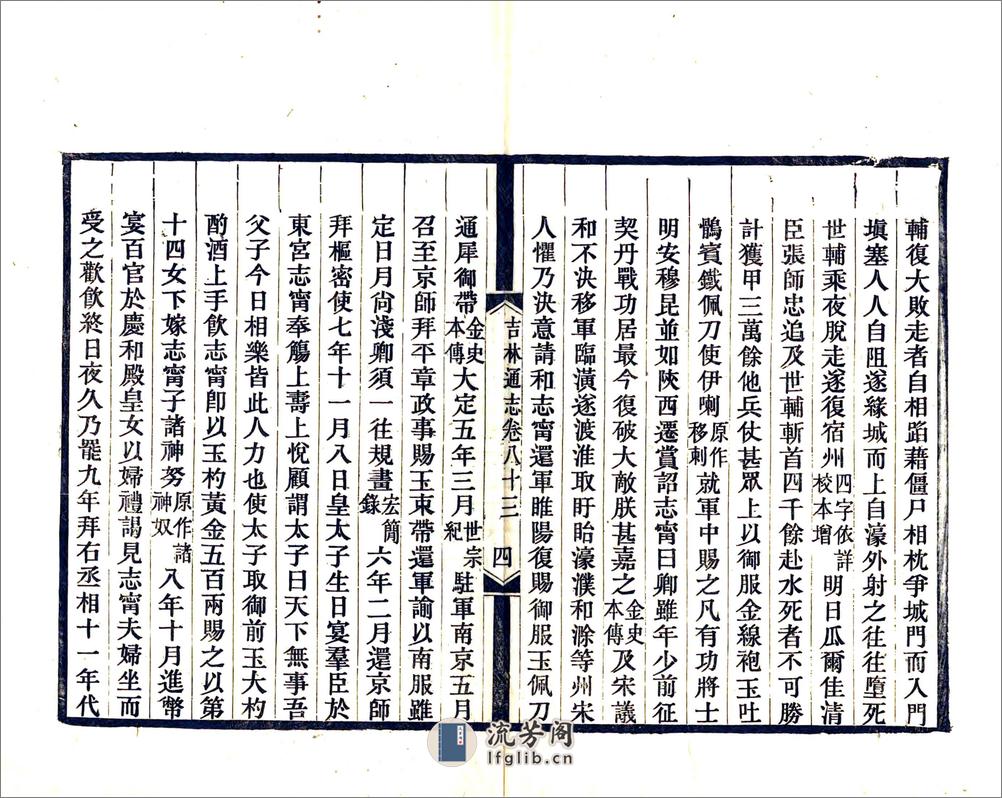 輔復大敗走者自相蹈藉僵尸相枕爭城門而入門
塡塞人人自阻遂緣城而上自濠外射之往往墮死
世輔乘夜脫走遂復宿州四字依詳校本增明日瓜爾佳清
臣張師忠追及世輔斬首四千餘赴水死者不可勝
計獲甲三萬餘他兵仗甚眾上以御服金線袍玉吐
鶻賓鐵佩刀使伊喇原作移剌就軍中賜之凡有功將士
明安穆昆並如陝西遷賞詔志甯曰卿雖年少前征
契丹戰功居最今復破大敵朕甚嘉之金史本傳及宋議
和不決移軍臨潢遂渡淮取盱眙濠濮和滁等州宋
人懼乃決意請和志甯還軍睢陽復賜御服玉佩刀
吉林通志卷八十三 四
通犀御帶金史本傳大定五年三月世宗紀駐軍南京五月
召至京師拜平章政事賜玉束帶還軍諭以南服雖
定日月尙淺卿須一往規畫宏簡錄六年二月還京師
拜樞密使七年十一月八日皇太子生日宴羣臣於
東宮志甯奉觴上壽上悅顧謂太子曰天下無事吾
父子今日相樂皆此人力也使太子取御前玉大杓
酌酒上手飮志甯卽以玉杓黃金五百兩賜之以第
十四女下嫁志甯子諸神努原作諸神奴八年十月進幣
宴百官於慶和殿皇女以婦禮謁見志甯夫婦坐而
受之歡飮終日夜久乃罷九年拜右丞相十一年代
流芳阁
lfglib.cn